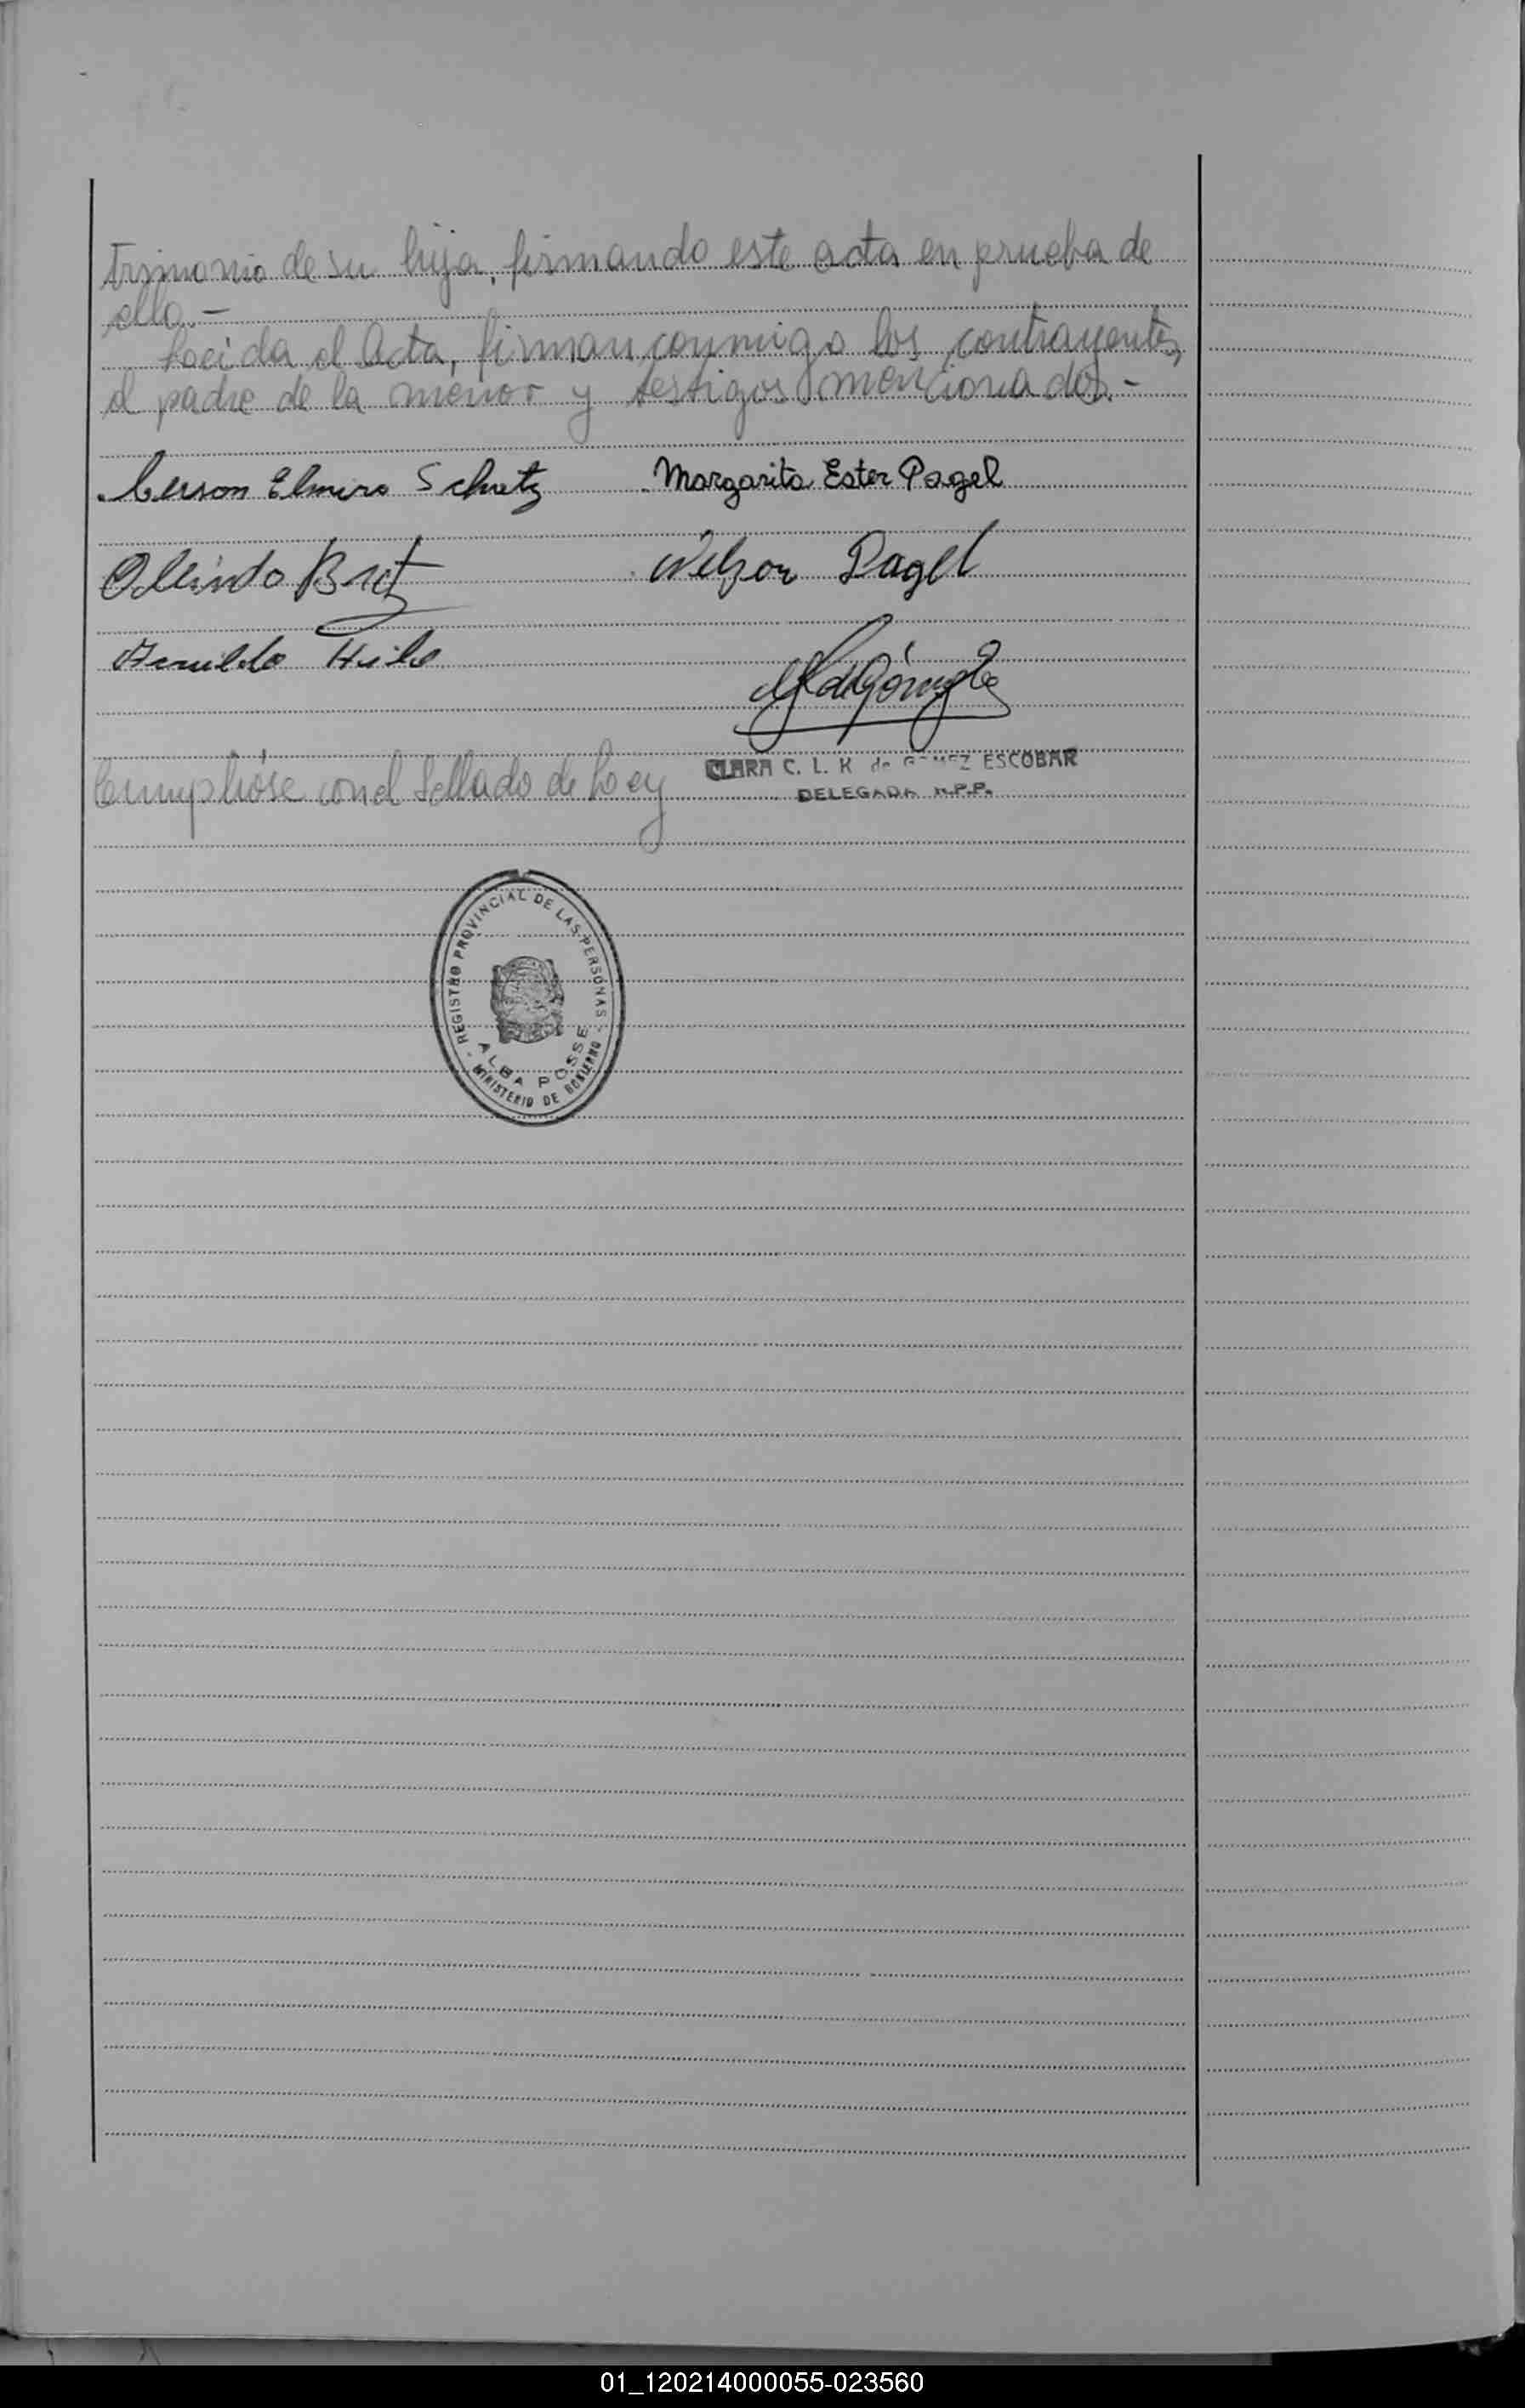 trimonio de su hija, firmando este acta en prueba de
ello.-
Leida el Acta, firman conmigo los contrayentes,
el padre de la menor y testigos mencionados.-
Gerson Elmiro Schutz Margarita Ester Pagel
Olindo Nelson Pagel
CLARA C. L. K de GOMEZ ESCOBAR
Cumplióse con el Sellado de Ley
DELEGADA R.P.P.
- REGISTRO PROVINCIAL DE LAS PERSONAS -
ALBA POSSE
MINISTERIO DE GOBIERNO
01_120214000055-023560